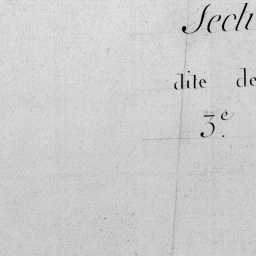 Sect
dite de
3e.